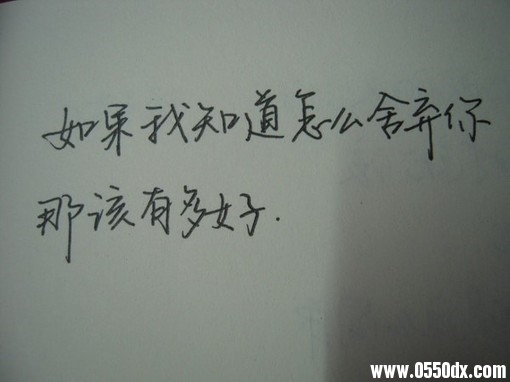 如果我知道怎么舍弃你
那该有多好.
www.0550dx.com